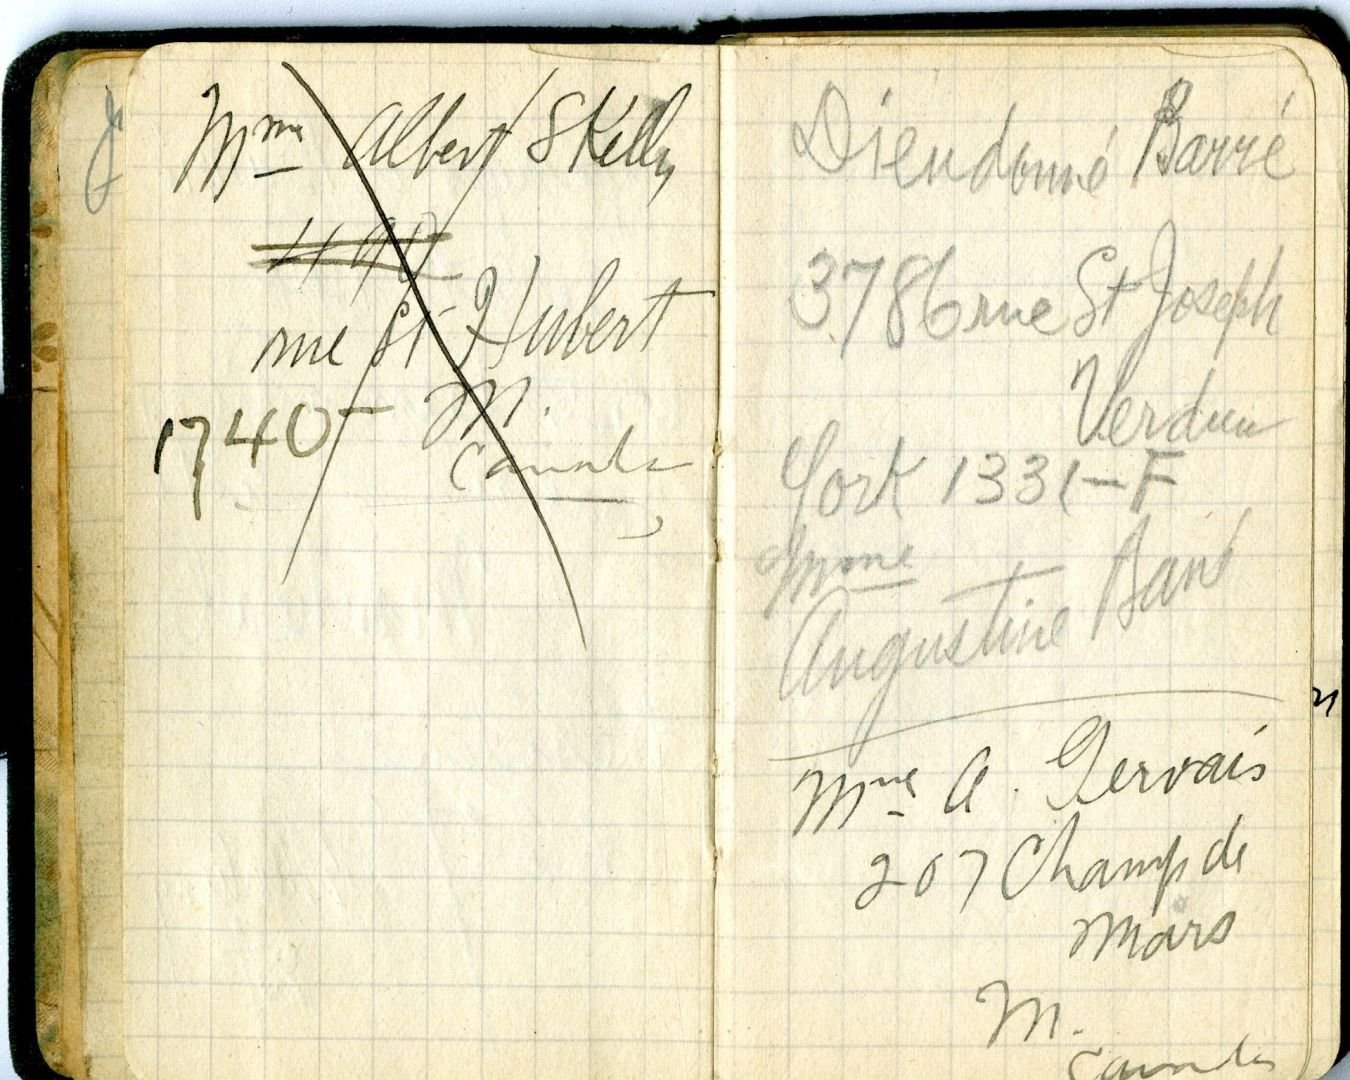 Mme Albert Skelly
1192
rue St Hubert
1740 - M.
Canada
Dieudonné Barré
3786 rue St Joseph
Verdun
York 1331-F
Mme
Augustine Barré
Mme A. Gervais
207 Champ de
Mars
M.
Canada